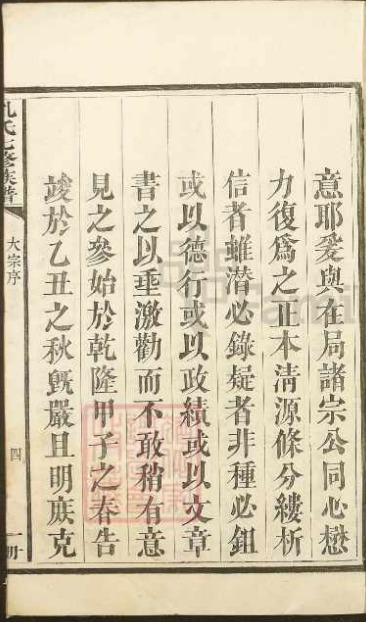 意耶爰與在局諸宗公同心懋
力復為之正本清源條分縷析
信者雖潜必錄疑者非種必鉏
或以德行或以政績或以文章
書之以垂激勸而不敢稍有意
見之參始於乾隆甲子之春告
竣於乙丑之秋旣嚴且明庶克
孔氏七修族譜
大宗序
四
一冊